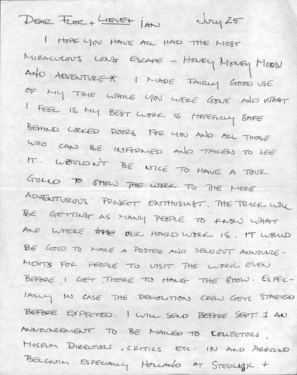 DEAR FLOR + LIEVEN IAN July 25
I HOPE YOU HAVE ALL HAD THE MOST
MIRACULOUS LONG ESCAPE – HONEY MONEY MOON
AND ADVENTURE I MADE FAIRLY GOOD USE
OF MY TIME WHILE YOU WERE GONE AND WHAT
I FEEL IS MY BEST WORK IS HOPEFULLY SAFE
BEHIND LOCKED DOORS FOR YOU AND ALL THOSE
WHO CAN BE INFORMED AND TAKEN TO SEE
IT. WOULDN'T BE NICE TO HAVE A TOUR
GUILD TO SHOW THE WORK TO THE MORE
ADVENTUROUS PROJECT ENTHUSIAST. THE TRICK WILL
BE GETTING AS MANY PEOPLE TO KNOW WHAT
AND WHERE OUR HARD WORK IS. IT WOULD
BE GOOD TO MAKE A POSTER AND SEND OUT ANNOUNCE-
MENTS FOR PEOPLE TO VISIT THE WORK EVEN
BEFORE I GET THERE TO HANG THE SHOW. ESPEC-
IALLY IN CASE THE DEMOLITION CREW GETS STARTED
BEFORE EXPECTED. I WILL SEND BEFORE SEPT 1 AN
ANNOUNCEMENT TO BE MAILED TO COLLECTORS,
MUSEUM DIRECTORS, CRITICS ETC. IN AND ARROUND
BELGIUM ESPECIALLY HOLLAND AT STEDLIJK +